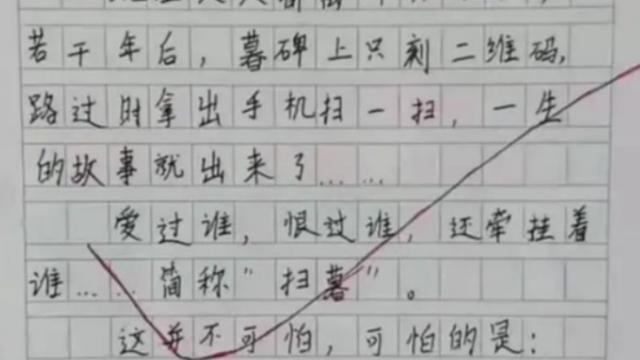 若干年后，暮碑上只刻二维码，
路过时拿出手机扫一扫，一生
的故事就出来了……
爱过谁，恨过谁，还牵挂着
谁……简称“扫暮”。
这并不可怕，可怕的是：